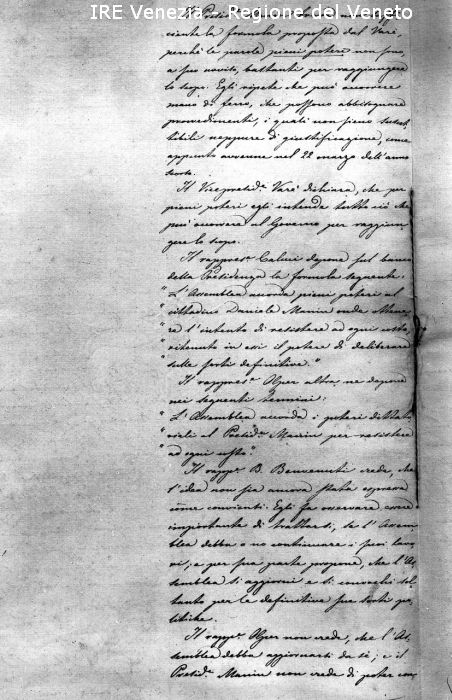 IRE Venezia - Regione del Veneto
Il Presid.
ciente la formola proposta dal Varè,
perchè le parole pieni poteri non sono,
a suo avviso, bastanti per raggiungere
lo scopo. Egli ripete che può occorrere
mano di ferro, che possono abbisognare
provvedimenti, i quali non sieno suscet-
tibili neppure di giustificazione, come
appunto avvenne nel 22 marzo dell'anno
scorso.
Il Vicepresid.e Varè dichiara, che per
pieni poteri egli intende tutto ciò che
può occorrere al Governo per raggiun-
gere lo scopo.
Il rappres.e Caluci depone sul banco
della Presidenza la formola seguente:
"L'Assemblea accorda pieni poteri al
"cittadino Daniele Manin onde otten-
"ed l'intento di resistere ad ogni costo,
"ritenuto in essi il potere di deliberare
"sulle sorti definitive."
Il rappres.e Olper altra ne depone
nei seguenti termini:
"L'Assemblea accorda i poteri dittat-
"oriali al Presid.e Manin per resistere
"ad ogni costo."
Il rapp.e B. Benvenuti crede, che
l'idea non sia ancora stata espressa
come convienti. Egli fa osservare essere
importante di trattarsi, se l'Assem-
blea debba o no continuare i suoi lavo-
ri; e per sua parte propone, che l'As-
semblea si aggiorni e si convochi sol-
tanto per le definitive sue sorti po-
litiche.
Il rapp.e Olper non crede, che l'As-
semblea debba aggiornarsi da sè; e il
Presid.e Manin non crede di poter con-